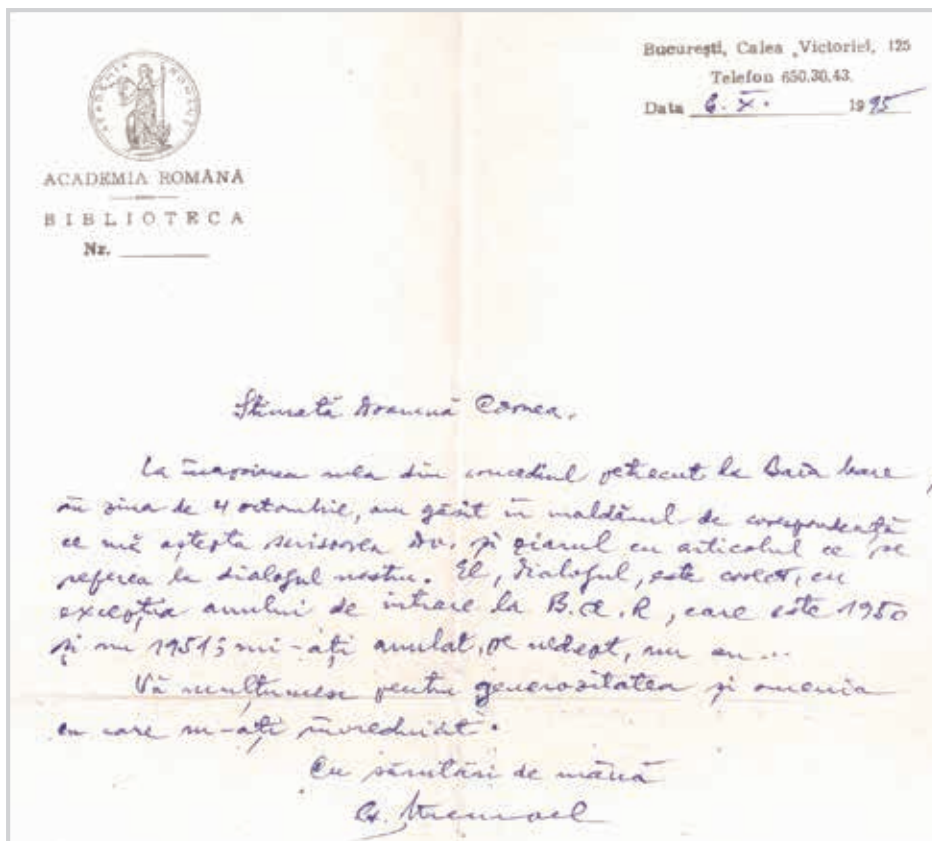 București, Calea Victoriei, 125
Telefon 650.30.43.
Data 6.X. 1995
ACADEMIA ROMÂNĂ
BIBLIOTECA
Nr.
Stimată Doamnă Cornea,
La înapoierea mea din concediul petrecut la Baia Mare,
în ziua de 4 octombrie, am găsit în maldărul de corespondență
ce mă aștepta scrisoarea Dv. și ziarul cu articolul ce se
referea la dialogul nostru. El, dialogul, este corect, cu
excepția anului de intrare la B.A.R, care este 1950
și nu 1951; mi-ați anulat, pe nedrept, un an...
Vă mulțumesc pentru generozitatea și omenia
cu care m-ați învrednicit.
Cu sărutări de mână